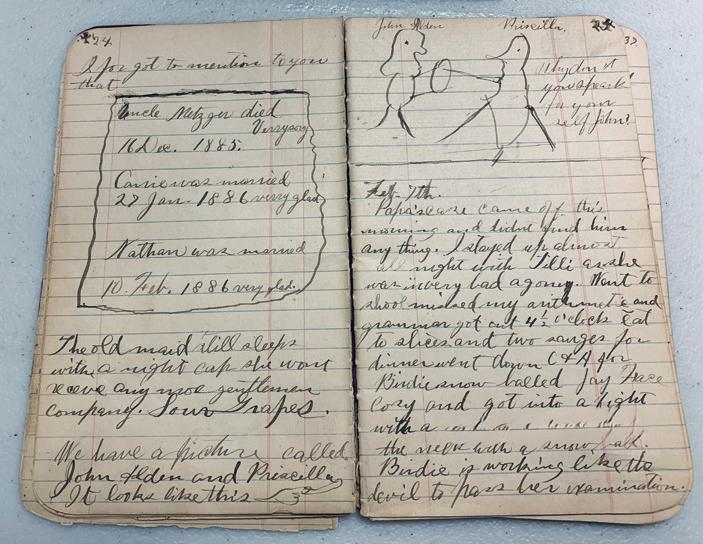 24.
I forgot to mention to you
that
Uncle Metzger died
Verry sorry
16 Dec. 1885.
Carrie was married
27 Jan. 1886 verry glad
Nathan was married
10. Feb. 1886 very glad.
The old maid still sleeps
with a night cap she wont
receve any more gentlemen
company. Sour Grapes.
We have a picture called
John Alden and Priscilla,
It looks like this
John Alden Priscilla,
Why don't
you speak
for your
self John?
Feb. 7th.
Papa's case came off this
morning and didnt find him
any thing. I stayed up almost
all night with Tilli as she
was in very bad agony. Went to
shool missed my arithmetic and
grammar got out 4½ o'clock Eat
to slices and two for
dinner went down for
Birdie snow balled Jay
Cory and got into a fight
with a
the neck with a snow ball.
Birdie is working like the
devil to pass her examination.